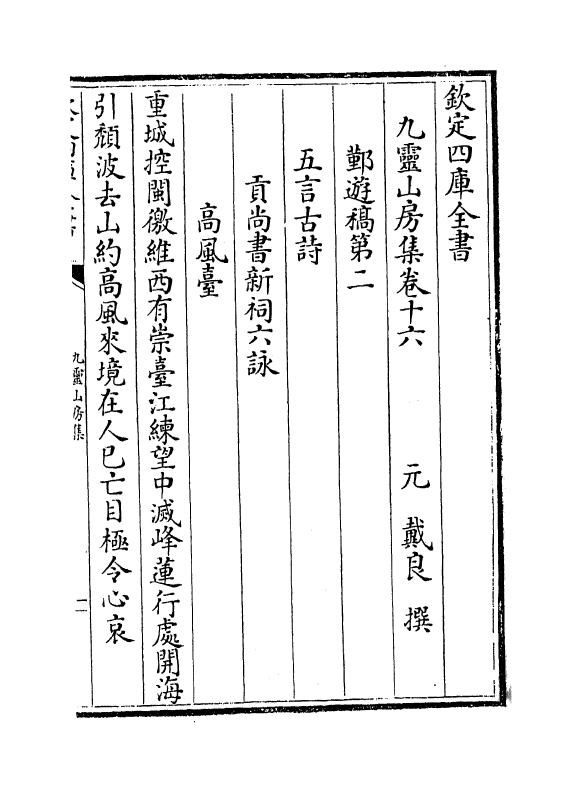 欽定四庫全書
九靈山房集卷十六　　元　戴良　撰
鄞遊稿第二
五言古詩
貢尚書新祠六詠
高風臺
重城控閩徼維西有崇臺江練望中滅峰蓮行處開海
引頹波去山約高風來境在人已亡目極令心哀
九靈山房集